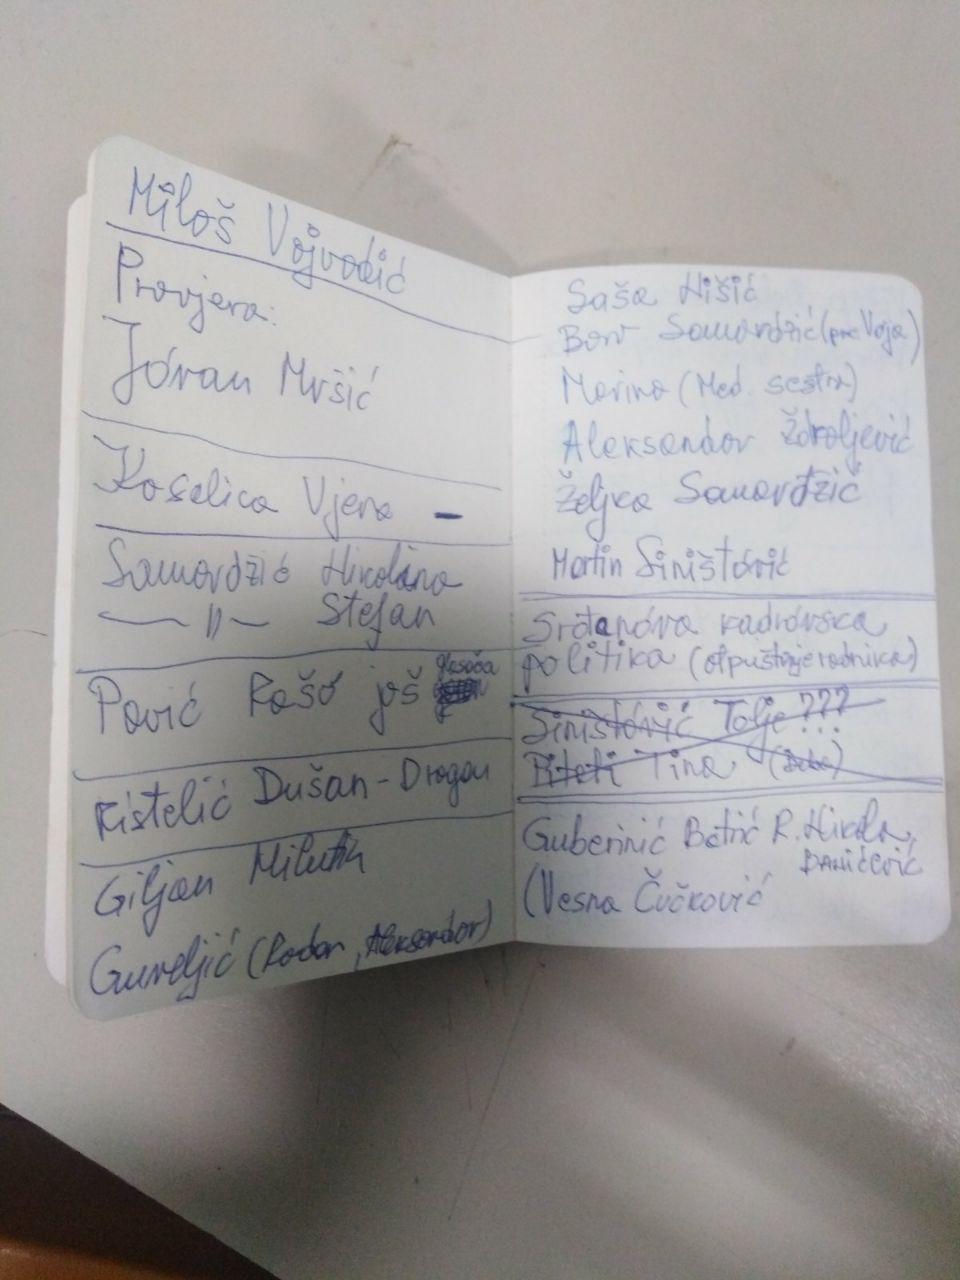 Miloš Vojvodić
Provjera:
Jovan Mršić
Koselica Vjera -
Samardžić Nikolina
— 〃 — Stefan
Pović Rašo još glasača
Kistelić Dušan - Dragan
Giljan Milutin
Gureljić (Radan, Aleksandar)
Saša Nišić
Boro Samardžić (pre. Voja)
Marina (Med. sestra)
Aleksandar Ždraljević
Željka Samardžić
Martin Siništović
Srđanova kadrovska
politika (otpuštanje radnika)
Siništović Tolje ???
Piteti Tina
Guberinić Betić R. Nikola,
DANIČEVIĆ
(Vesna Čučković